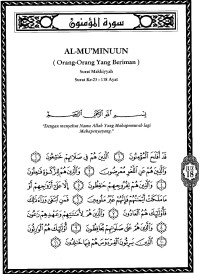 سورة المؤمنون
AL-MU'MINUUN
( Orang-Orang Yang Beriman )
Surat Makkiyyah
Surat Ke-23 : 118 Ayat
بِسْمِ اللَّهِ الرَّحْمَٰنِ الرَّحِيمِ
"Dengan menyebut Nama Allah Yang Mahapemurah lagi
Mahapenyayang."
قَدْ أَفْلَحَ الْمُؤْمِنُونَ الَّذِينَ هُمْ فِي صَلَاتِهِمْ خَاشِعُونَ
وَالَّذِينَ هُمْ عَنِ اللَّغْوِ مُعْرِضُونَ وَالَّذِينَ هُمْ لِلزَّكَاةِ فَاعِلُونَ
وَالَّذِينَ هُمْ لِفُرُوجِهِمْ حَافِظُونَ إِلَّا عَلَىٰ أَزْوَاجِهِمْ أَوْ
مَا مَلَكَتْ أَيْمَانُهُمْ فَإِنَّهُمْ غَيْرُ مَلُومِينَ فَمَنِ ابْتَغَىٰ وَرَاءَ ذَٰلِكَ
فَأُولَٰئِكَ هُمُ الْعَادُونَ وَالَّذِينَ هُمْ لِأَمَانَاتِهِمْ وَعَهْدِهِمْ رَاعُونَ
وَالَّذِينَ هُمْ عَلَىٰ صَلَوَاتِهِمْ يُحَافِظُونَ أُولَٰئِكَ هُمُ الْوَارِثُونَ
الَّذِينَ يَرِثُونَ الْفِرْدَوْسَ هُمْ فِيهَا خَالِدُونَ
18